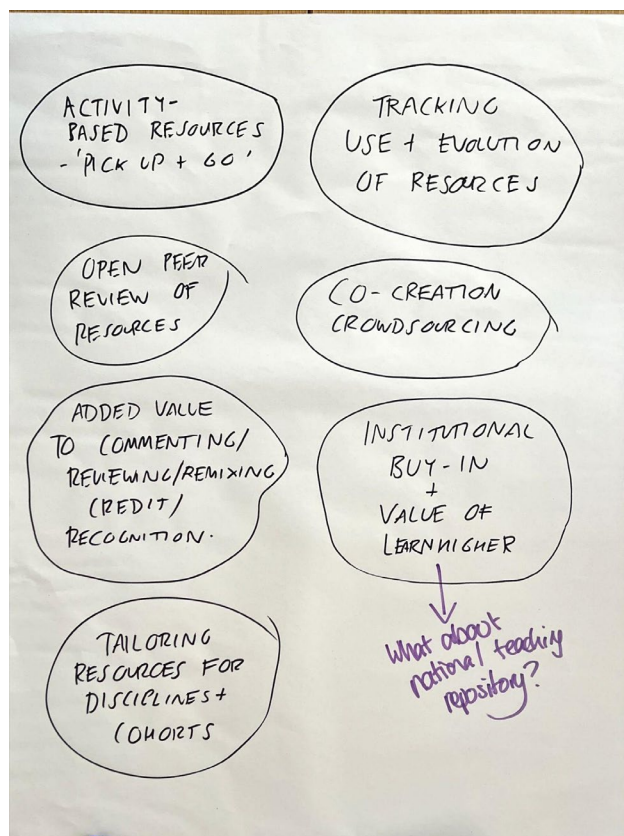 ACTIVITY-
BASED RESOURCES
- 'PICK UP + GO'
TRACKING
USE + EVOLUTION
OF RESOURCES
OPEN PEER
REVIEW OF
RESOURCES
CO-CREATION
CROWDSOURCING
ADDED VALUE
TO COMMENTING/
REVIEWING/REMIXING
CREDIT/
RECOGNITION.
INSTITUTIONAL
BUY-IN
+
VALUE OF
LEARNHIGHER
What about
national teaching
repository?
TAILORING
RESOURCES FOR
DISCIPLINES +
COHORTS